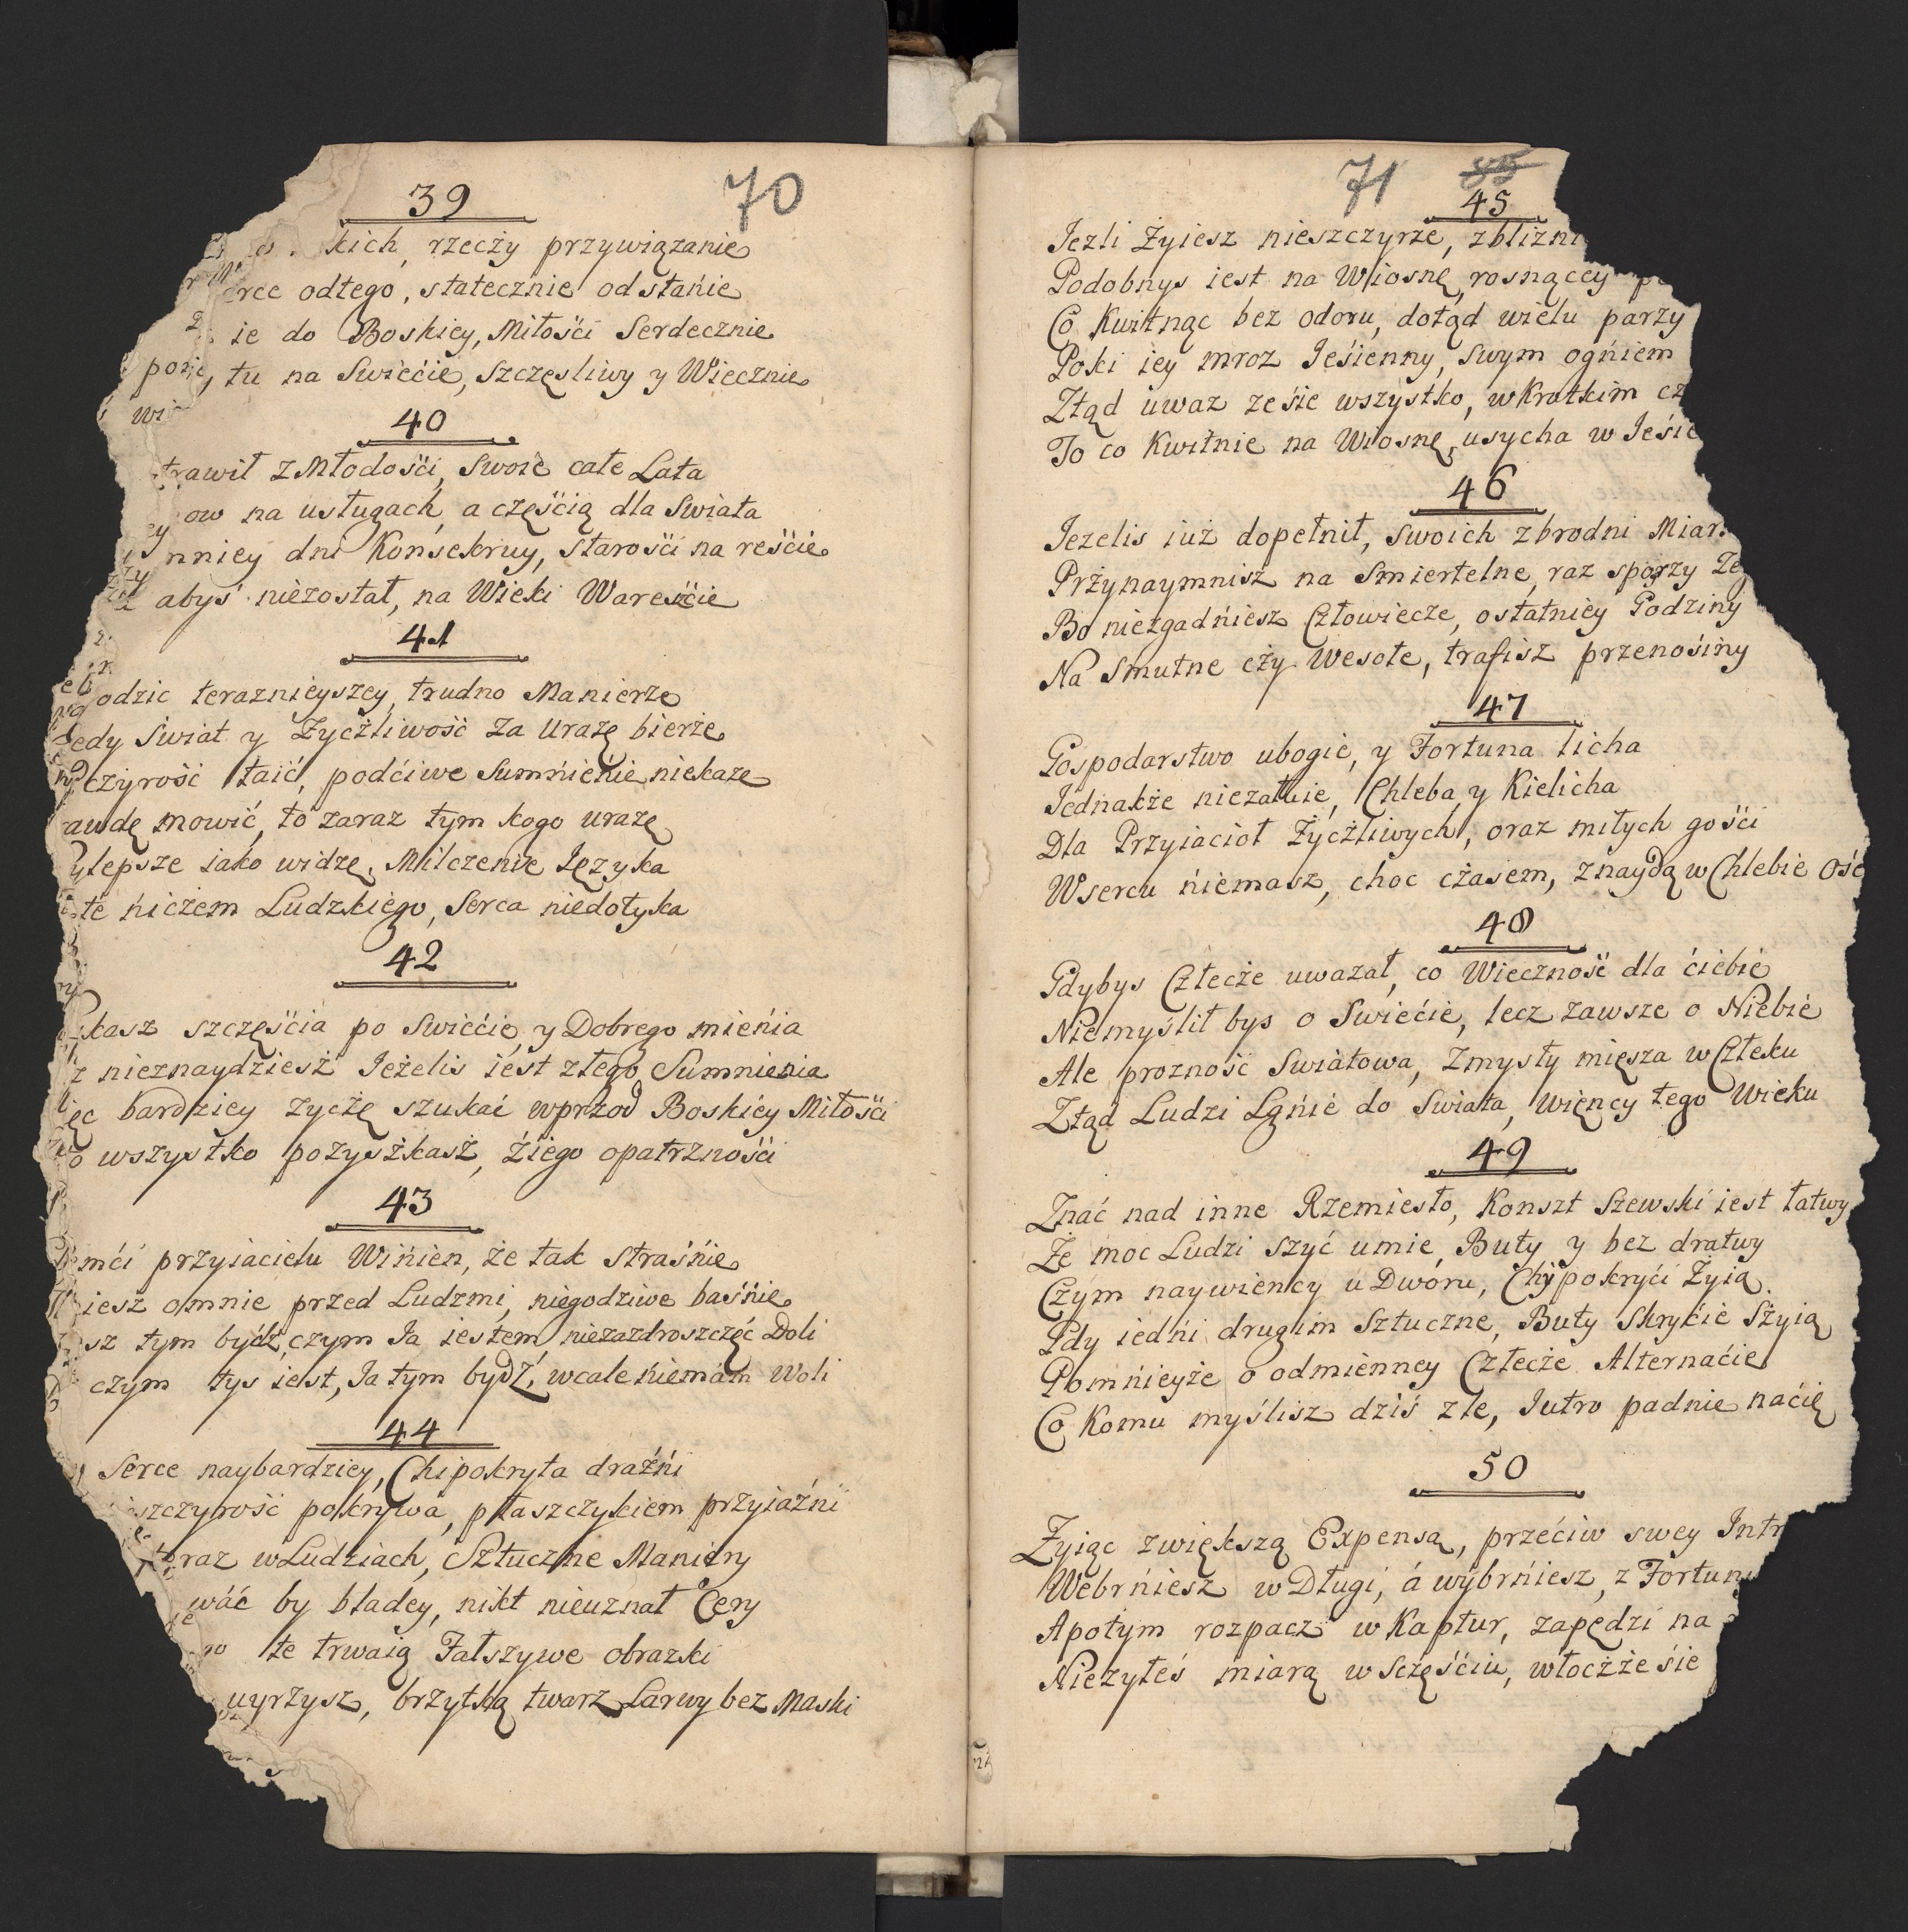 70
39
kich, rzeczy przywiązanie
odtego, statecznie odstanie
ie do Boskiey, Miłości Serdecznie
tu na Swiecie, Szczęsliwy y Wiecznie
40
trawił z Młodości, Swoie całe Lata
ow na usługach, a częścią dla Swiata
mniey dni Konsekruy, starości na reście
abyś niezostał, na Wieki Wareście
41
odzic teraznieyszey, trudno Manierze
edy Swiat y Zyczliwość za Urazę bierze
czyrość taić, podciwe Sumnienie niekaze
awdę mowić, to zaraz tym kogo urazę
ylepsze iako widzę, Milczenie Języka
te niczem Ludzkiego, Serca niedotyka
42
kasz szczęścia po Swiecie, y Dobrego mienia
z nieznaydziesz Jeżelis iest złego Sumnienia
ęc bardziey zyczę szukać wprzod Boskiey Miłości
o wszystko pozyszkasz, ziego opatrzności
43
mći przyiacielu Winien, że tak straśnie
iesz omnie przed Ludzmi, niegodziwe baśnie
sz tym bydź, czym Ja iestem, niezazdroszczęć Doli
czym tys iest, Ja tym bydź, wcale niemam Woli
44
Serce naybardziey, Chipokryta draźni
szczyrość pokrywa, płaszczykiem przyiaźni
raz w Ludziach, Sztuczne Maniery
wáć by bladey, nikt nieuznał Cery
te trwaią Fałszywe obrazki
uyrzysz, brzytką twarz Larwy bez Maski
71
45
Jezli Żyiesz nieszczyrze, zbliźni
Podobnys iest na Wiosnę, rosnącey
Co Kwitnąc bez odoru, dotąd wielu parzy
Poki iey mroz Jesienny, swym ogniem
Ztąd uwaz ześie wszystko, w krotkim
To co Kwitnie na Wiosnę, usycha w Jeśie
46
Jezelis iuż dopełnił, swoich zbrodni Miar
Przynaymnisz na Smiertelne, raz spoyrzy
Bo niezgadniesz Człowiecze, ostatniey Godziny
Na Smutne czy Wesołe, trafisz przenośiny
47
Gospodarstwo ubogie, y Fortuna licha
Jednakże niezałuie, Chleba y Kielicha
Dla Przyiacioł Życzliwych, oraz miłych gości
Wsercu niemasz, choc czasem, znaydą w Chlebie Ośc
48
Gdybys Człecze uwazał, co Wieczność dla ciebie
Niemyślił bys o Swiecie, lecz zawsze o Niebie
Ale prozność Swiatowa, Zmysły mięsza w Człeku
Ztąd Ludzi Lgnie do Swiata, więncy tego Wieku
49
Znać nad inne Rzemiesło, Konszt Szewski iest łatwy
Że moc Ludzi szyć umie, Buty y bez dratwy
Czym naywiencey u Dworu, Chypokryći Żyią
Gdy iedni drugim Sztuczne, Buty Skrycie Szyią
Pomnieyże o odmienney Człecze Alternacie
Co Komu myślisz dziś zle, Jutro padnie nacię
50
Zyiąc zwiększą Expensą, przeciw swey Intr
Webrniesz w Długi, á wybrniesz, z Fortuny
Apotym rozpacz w Kaptur, zapędzi na
Niezyłeś miarą w Sczęściu, włoczże śie